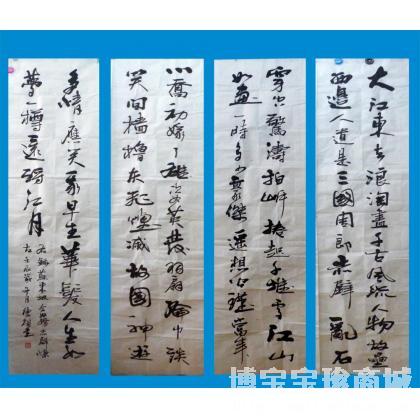 大江東去浪淘盡千古風流人物故壘
西邊人道是三國周郎赤壁亂石
穿空驚濤拍岸捲起千堆雪江山
如畫一時多少豪傑遙想公瑾當年
小喬初嫁了雄姿英發羽扇綸巾談
笑間檣櫓灰飛煙滅故國神遊
多情應笑我早生華髮人生如
夢一樽還酹江月
博宝宝珍商城